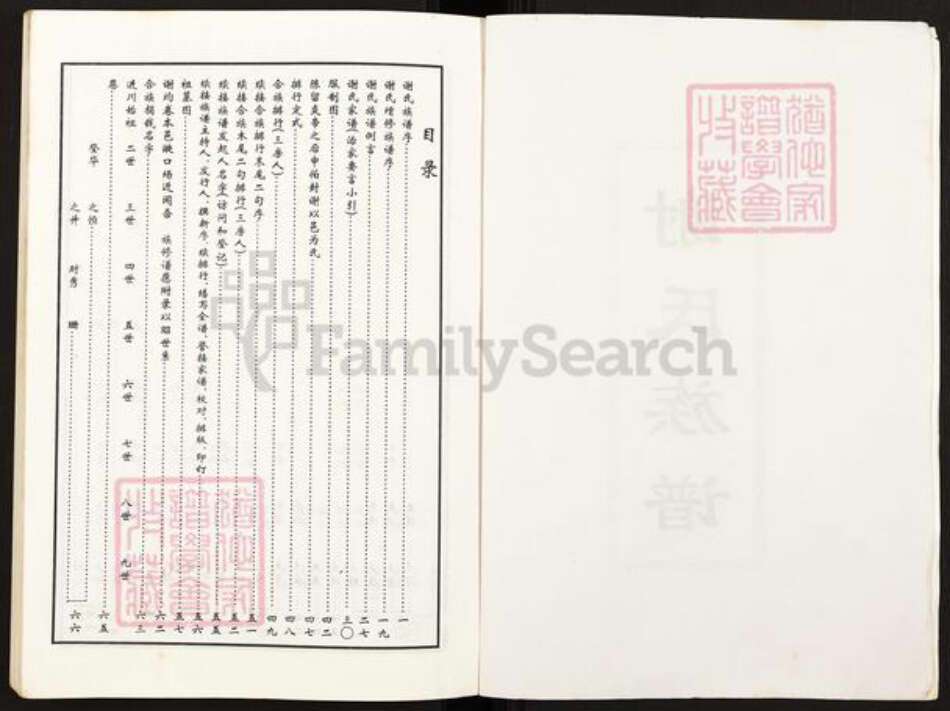 目录
谢氏族谱序 一
谢氏增修族谱序 一九
谢氏族谱例言 二七
谢氏家谱(治家要言小引) 三〇
服制图 四二
陈留炎帝之后申伯封谢以邑为氏 四七
排行定式 四八
合族排行(三房人) 四九
续接合族排行末尾二句序 五一
续接合族末尾二句排行(三房人) 五二
续接族谱发起人名字(访问和登记) 五五
续接族谱主持人、发行人、撰新序、续排行、缮写全谱、誊接家谱、校对、排版、印钉 五六
祖墓图 五七
谢均卷本邑 口场进闱各 族修谱应附录以昭世系 六二
合族捐钱名字 六三
进川始祖 二世 三世 四世 五世 六世 七世 八世 九世
六五
登华 之
之升 时秀 六六
FamilySearch
谢氏族谱
猶他家譜學會收藏
猶他家譜學會收藏